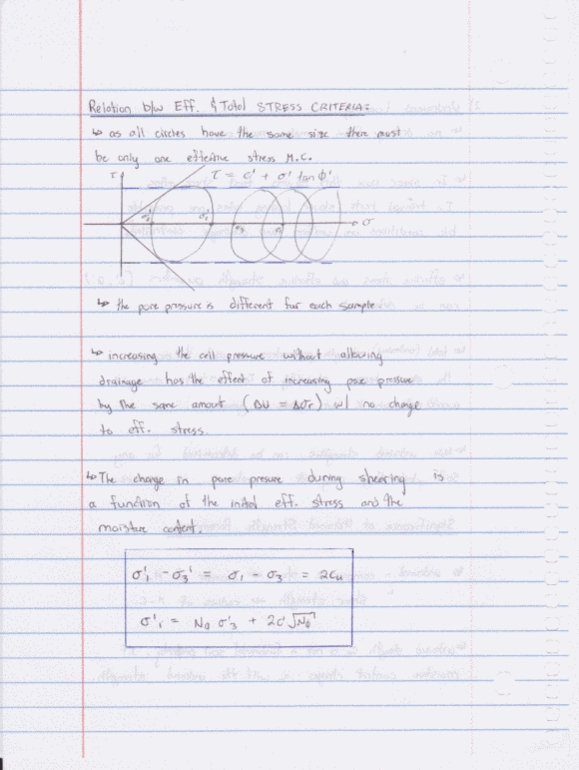 Relation b/w Eff. & Total STRESS CRITERIA:
↳ as all circles have the same size there must
be only one effective stress M.C.
τ
τ = c' + σ' tan φ'
σ
↳ the pore pressure is different for each sample
↳ increasing the cell pressure without allowing
drainage has the effect of increasing pore pressure
by the same amount (Δu = Δσr) w/ no change
to eff. stress.
↳ The change in pore pressure during shearing is
a function of the initial eff. stress and the
moisture content.
σ'₁ - σ₃' = σ₁ - σ₃ = 2cu
σ'₁ = Nφ σ'₃ + 2c'√Nφ